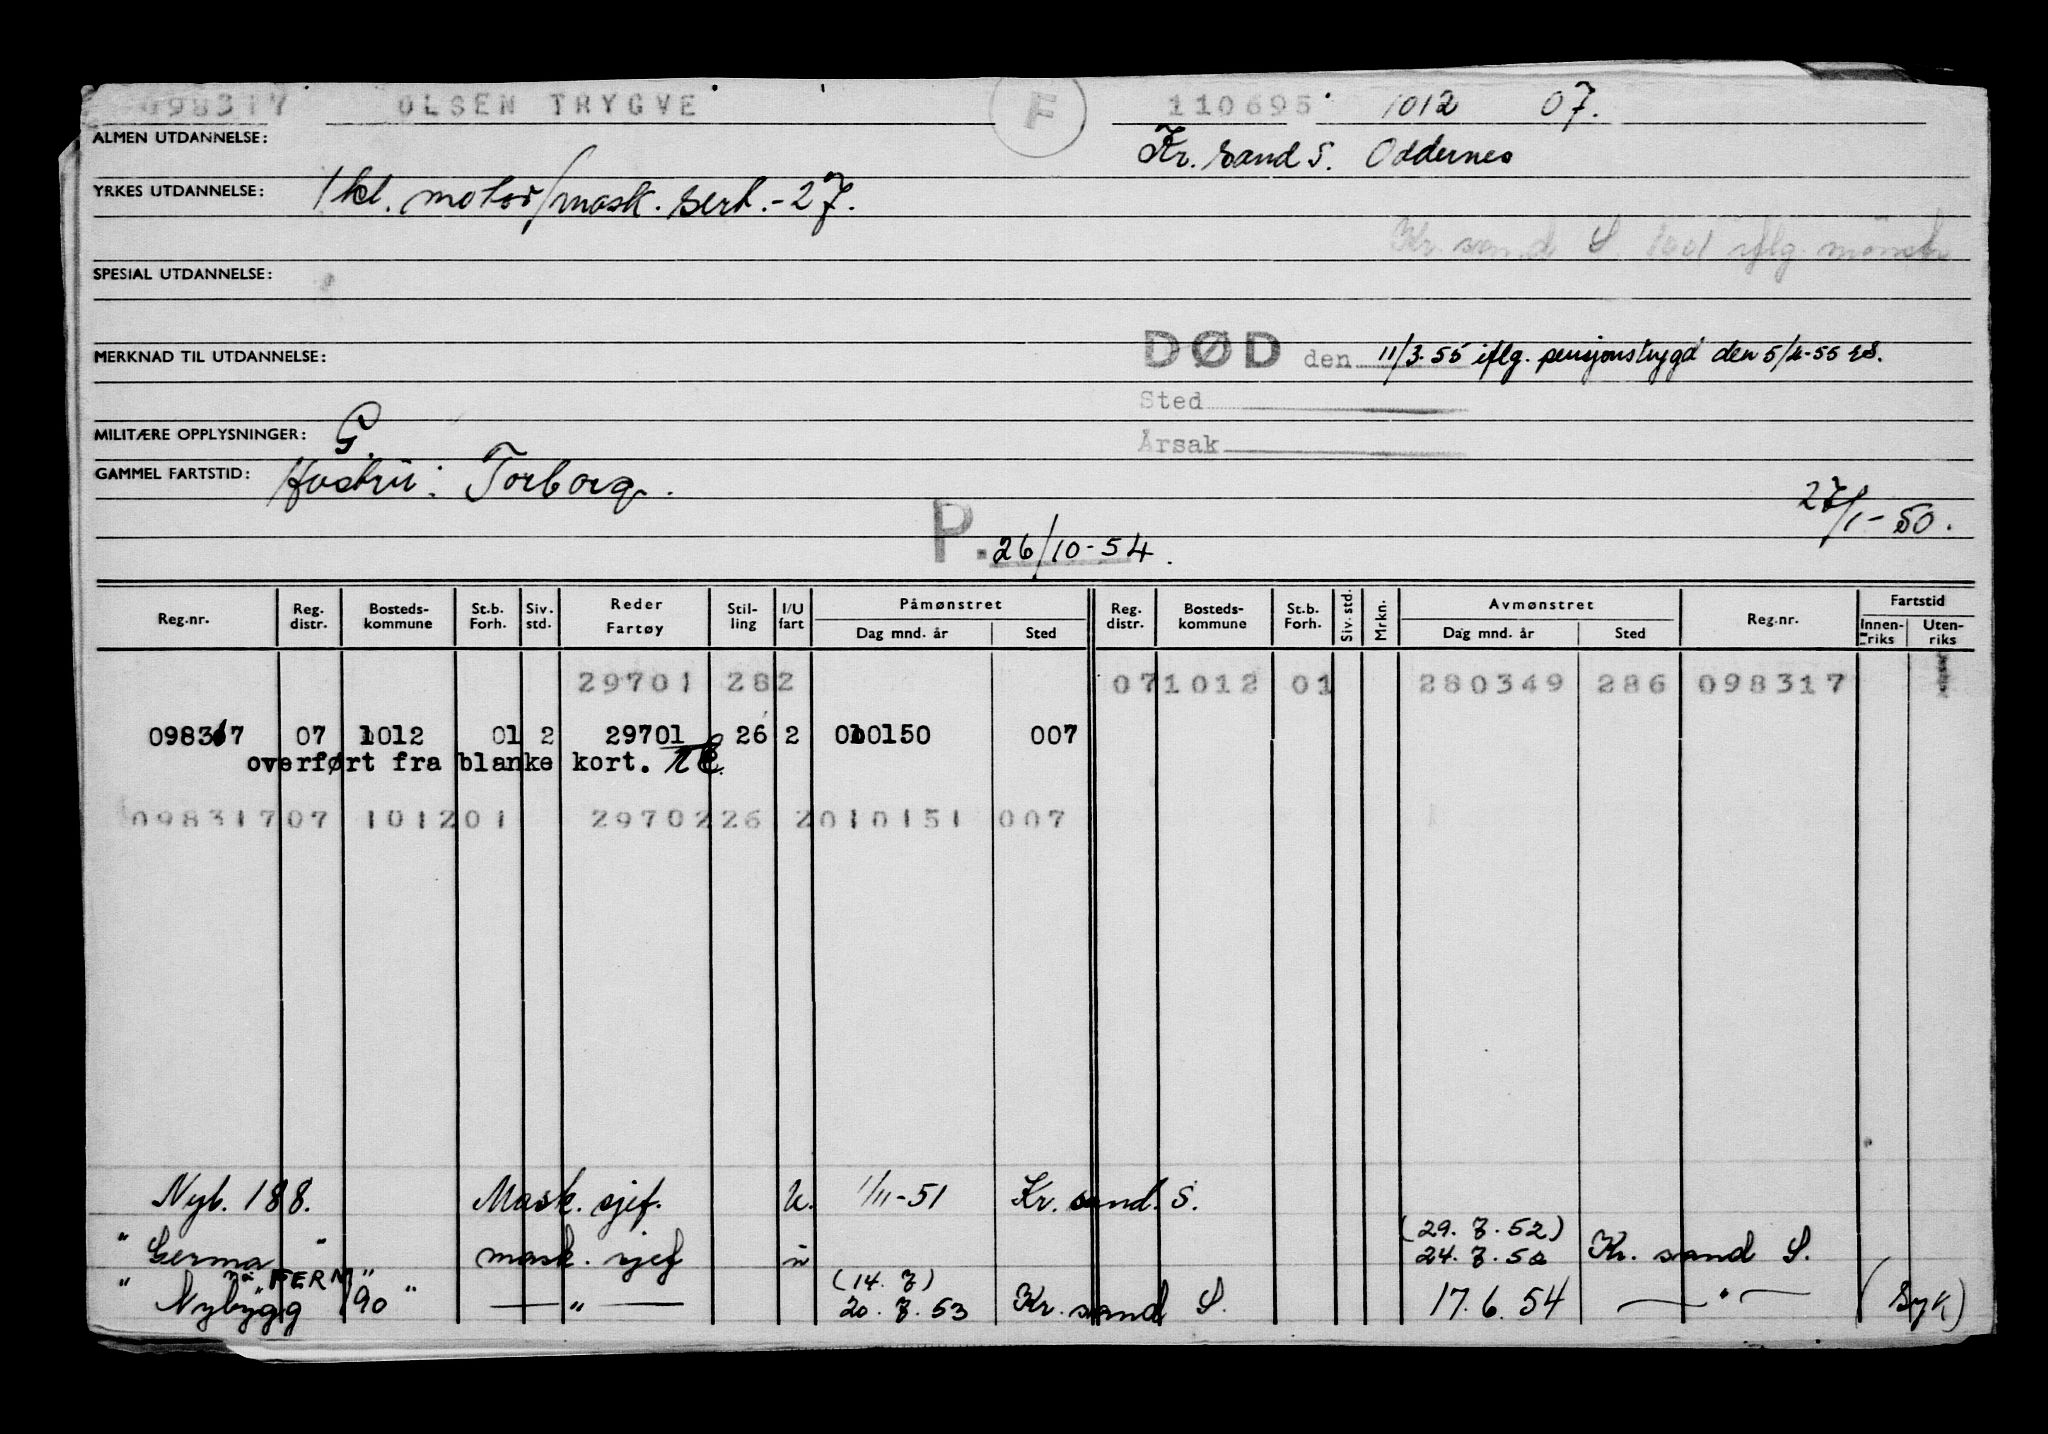 098317 OLSEN TRYGVE F 110695 1012 07.
ALMEN UTDANNELSE: Kr. sand S. Oddernes
YRKES UTDANNELSE: 1 kl. motor/mask. sert. -27.
Kr. sand S 1001 iflg. mønstr
SPESIAL UTDANNELSE:
MERKNAD TIL UTDANNELSE: DØD den 11/3-55 iflg. pensjonstrygd den 5/4-55
Sted
MILITÆRE OPPLYSNINGER: G. Årsak
GAMMEL FARTSTID: Hustru: Torborg.
27/1-50.
P. 26/10-54.
Reg.nr. Reg. distr. Bosteds-kommune St.b. Forh. Siv. std. Reder Fartøy Stil-ling I/U fart Påmønstret Dag mnd. år Sted Reg. distr. Bosteds-kommune St.b. Forh. Siv. std. Mrkn. Avmønstret Dag mnd. år Sted Reg.nr. Fartstid Innen-riks Uten-riks
29701 282 07 1012 01 280349 286 098317
098317 07 1012 01 2 29701 26 2 010150 007
overført fra blanke kort.
098317 07 1012 01 29702 26 2 010151 007
Nyb. 188. Mask. sjef. u. 1/11-51 Kr. sand. S.
(29. 7. 52)
" Germa " mask. sjef u 24. 7. 52 Kr. sand S.
nå "FERM" (14. 7)
" Nybygg 190 " — " — 20. 7. 53 Kr. sand S. 17. 6. 54 — " — (Syk)